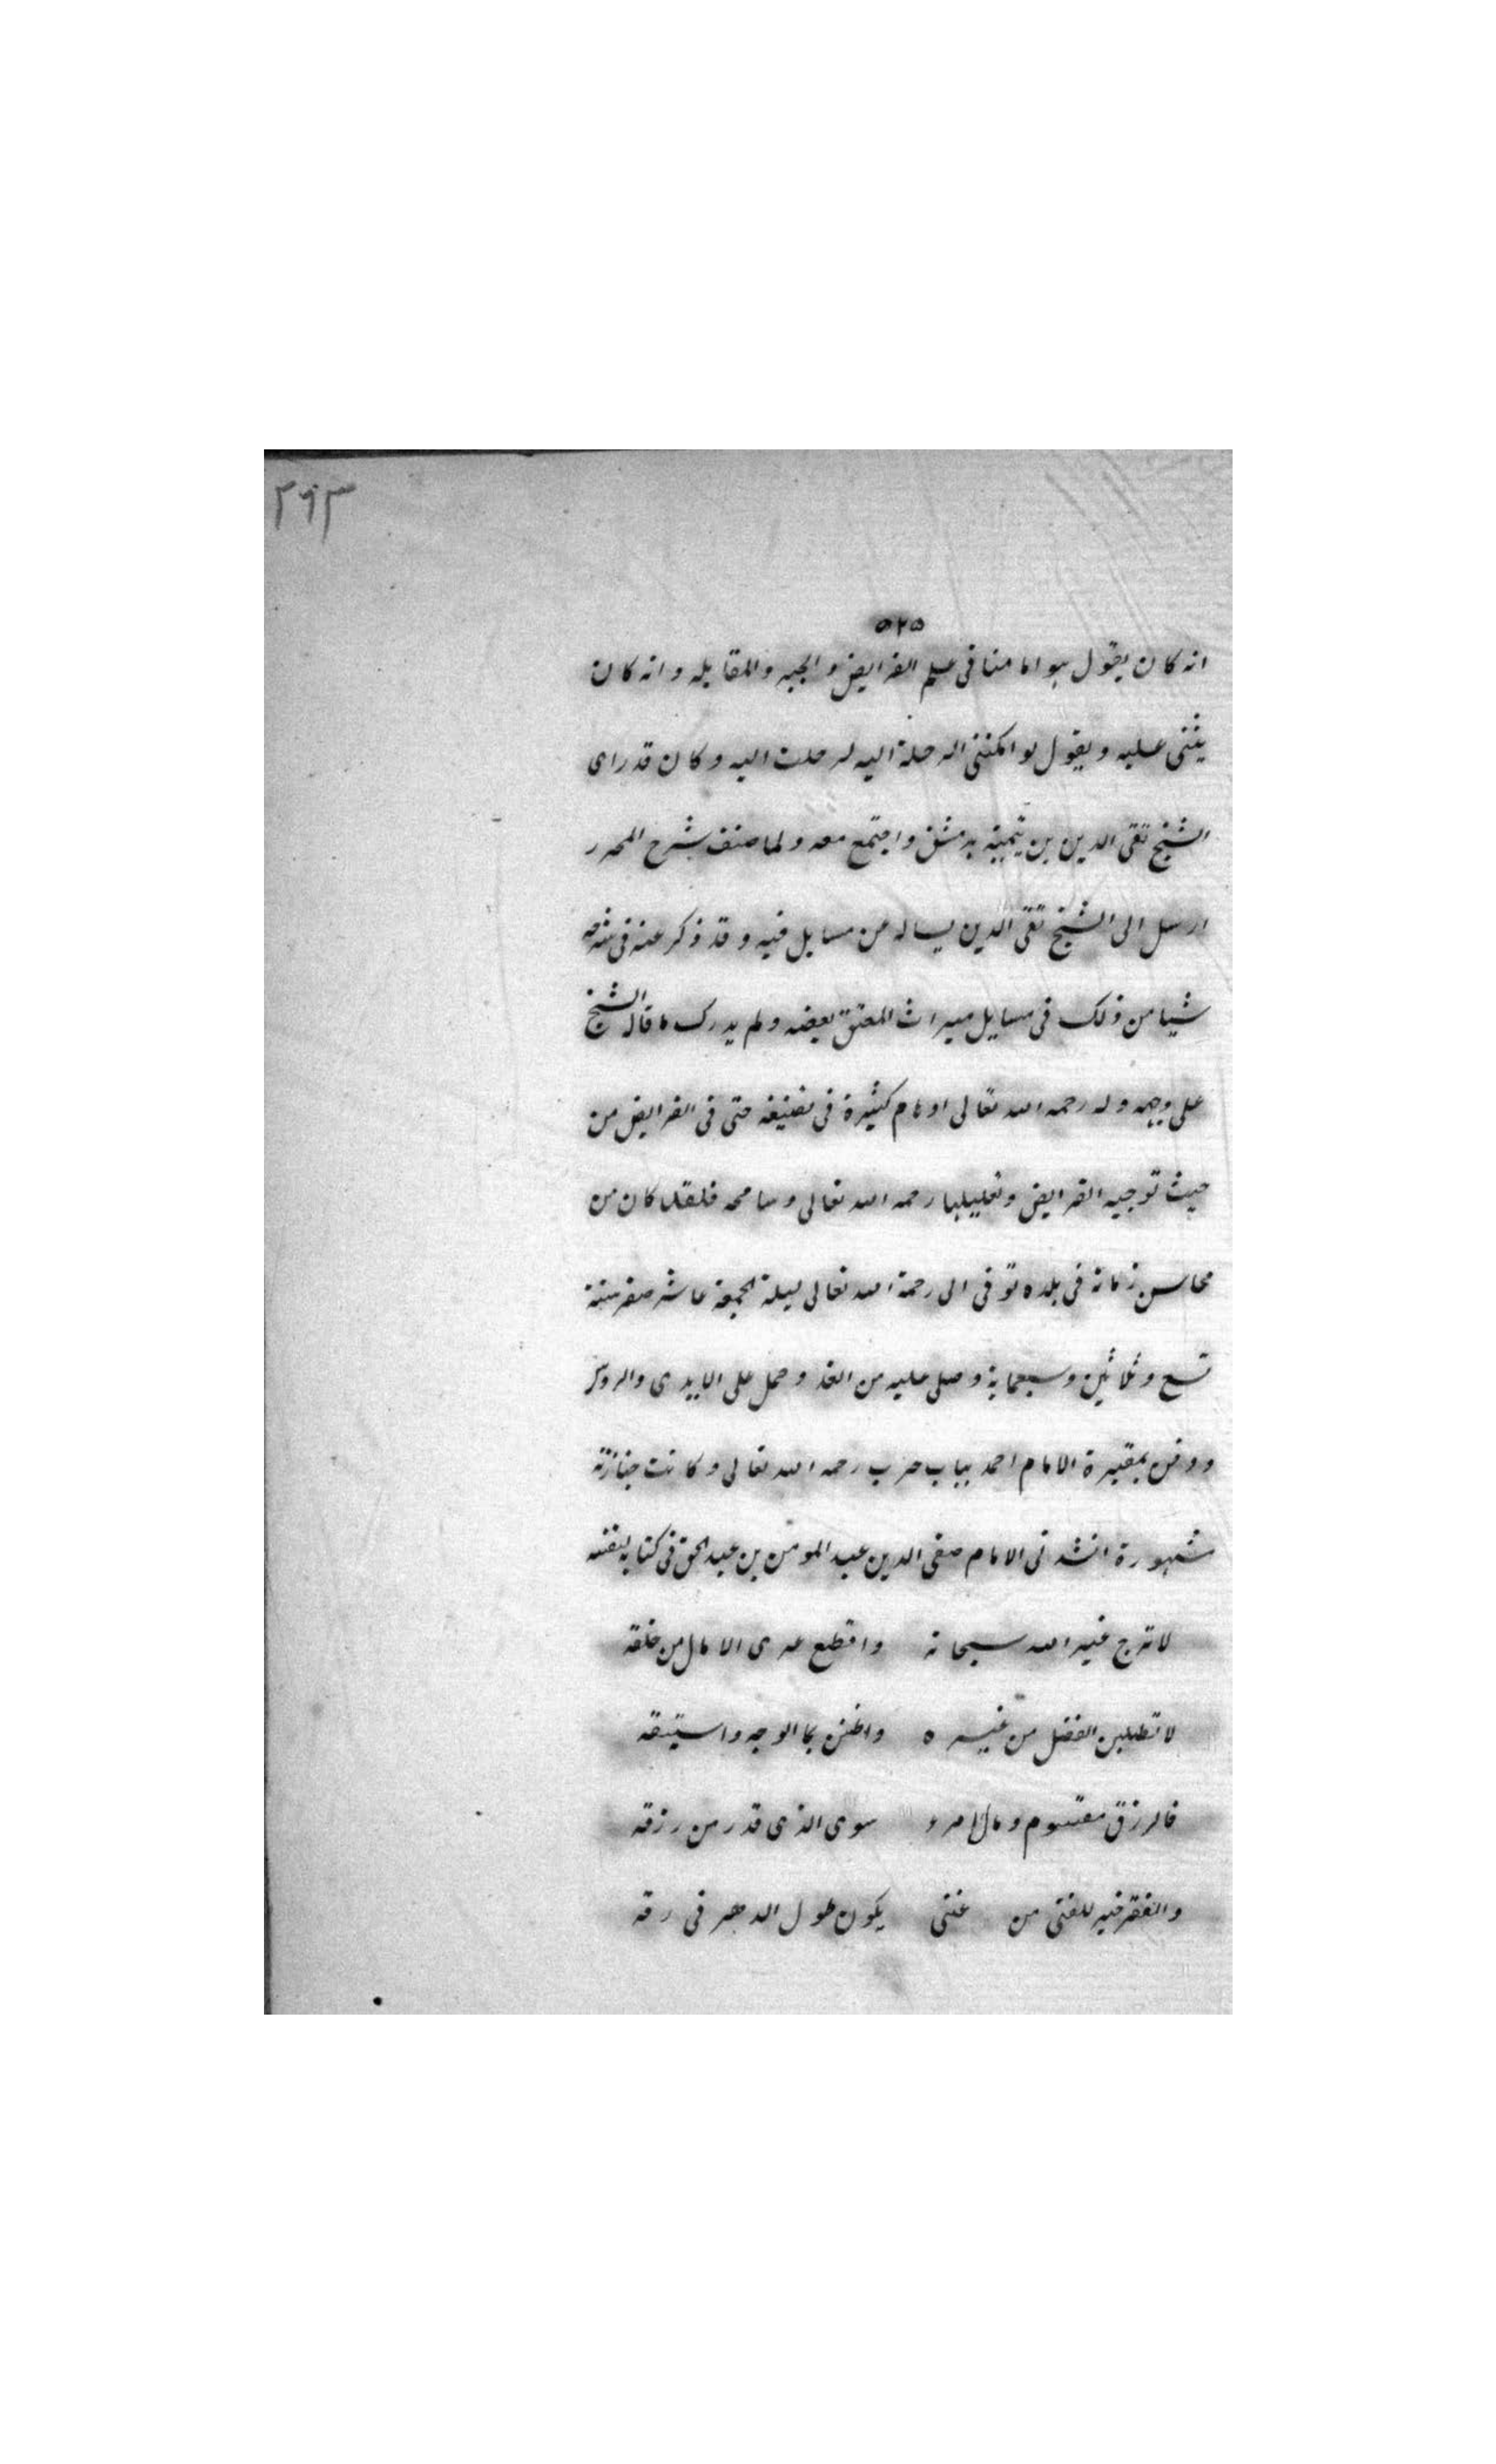 ٢٦٣
٥٢٥
انه كان يقول هو امامنا فى علم الفرايض والجبر والمقابله وانه كان
يثنى عليه ويقول لو امكننى الرحلة اليه لرحلت اليه وكان قد راى
الشيخ تقى الدين بن تيمية بدمشق واجتمع معه ولما صنف شرح المحرر
ارسل الى الشيخ تقى الدين يساله عن مسايل فيه وقد ذكر عنه فى شرحه
شيا من ذلك فى مسايل ميراث المعتق بعضه ولم يدرك ما قاله الشيخ
على وجهه وله رحمه الله تعالى اوهام كثيرة فى تصنيفه حتى فى الفرايض من
حيث توجيه الفرايض وتعليلها رحمه الله تعالى وسامحه فلقد كان من
محاسن زمانه فى بلده توفى الى رحمة الله تعالى ليلة الجمعة عاشر صفر سنة
تسع وثلاثين وسبعماية وصلى عليه من الغد وحمل على الايدى والروس
ودفن بمقبرة الامام احمد بباب حرب رحمه الله تعالى وكانت جنازته
مشهورة انشدنى الامام صفى الدين عبد المومن بن عبد الحق فى كتابه لنفسه
لا ترج غير الله سبحانه واقطع عرى الامال من خلقه
لا تطلبن الفضل من غيره واضنن بما الوجه واستبقه
فالرزق مقسوم وما لامرء سوى الذى قدر من رزقه
والفقر خير للفتى من غنى يكون طول الدهر فى رقه